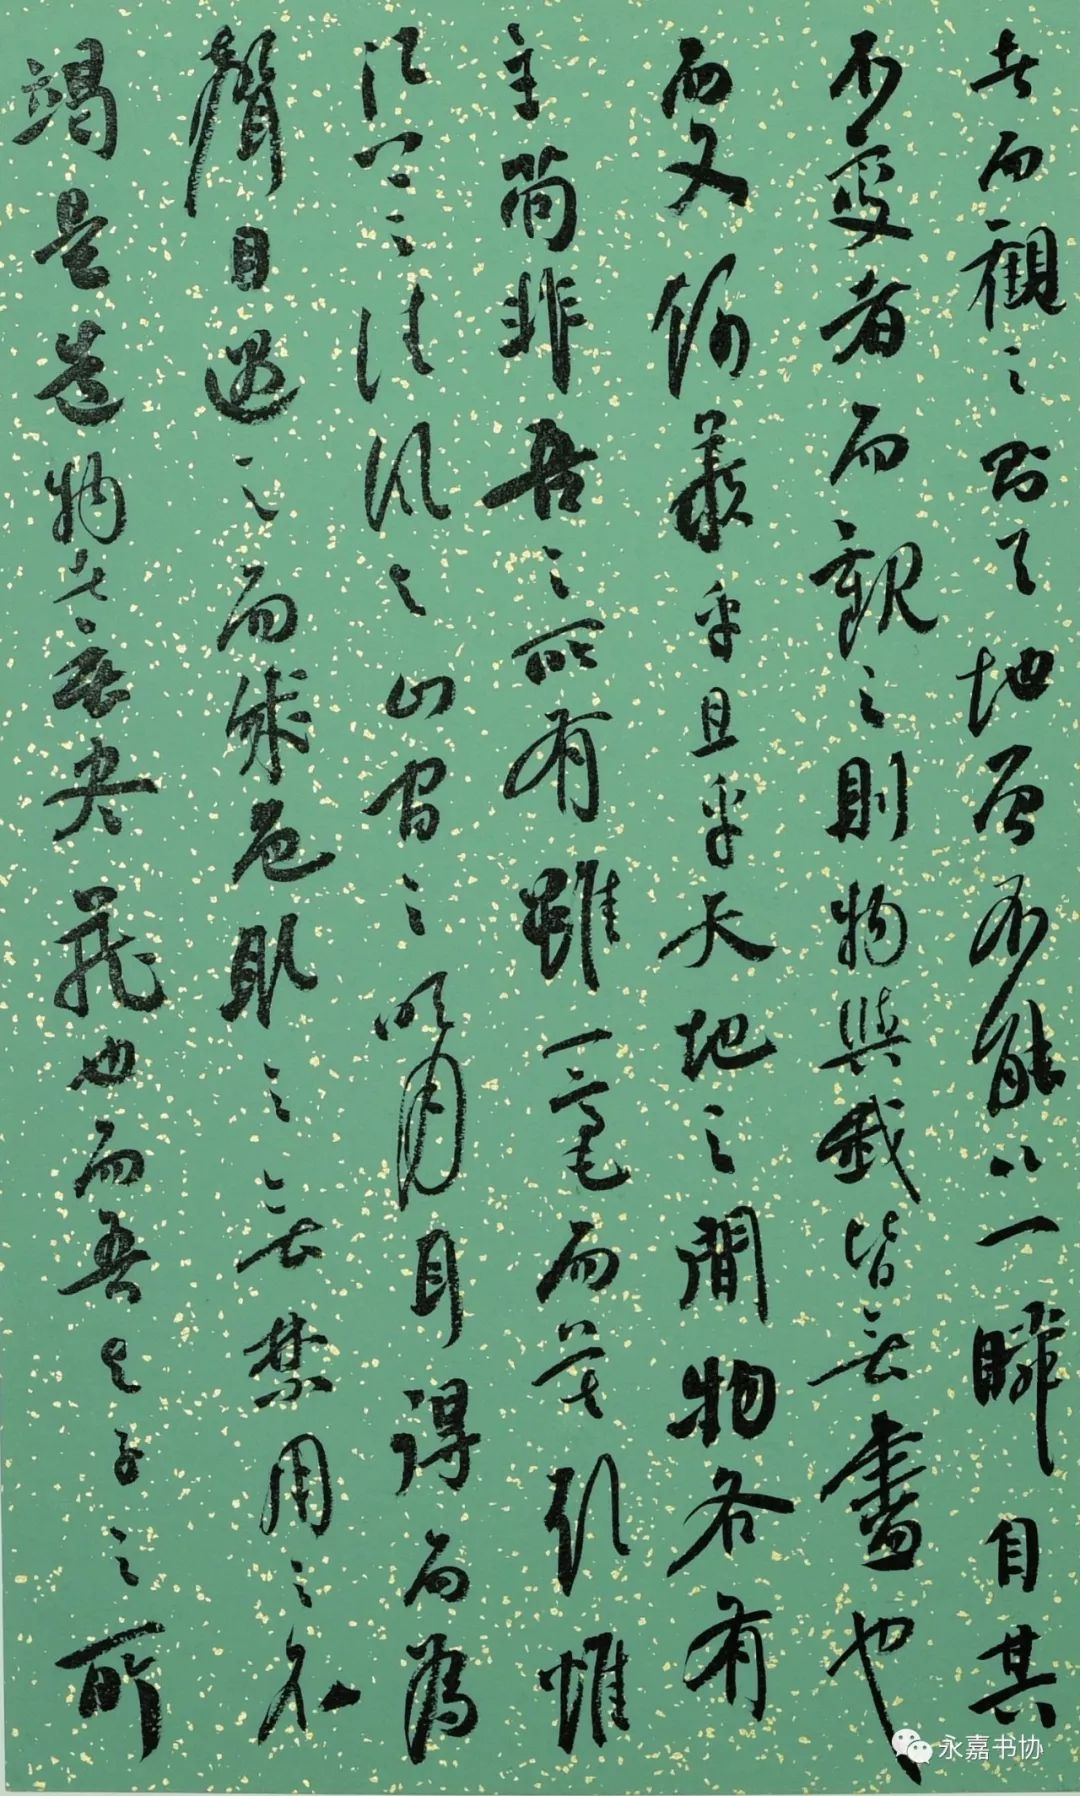 者而觀之則天地曾不能以一瞬自其
不變者而觀之則物與我皆無盡也
而又何羨乎且乎天地之間物各有
主苟非吾之所有雖一毫而莫取惟
江上之清風與山間之明月耳得而為
聲目遇之而成色取之無禁用之不
竭是造物者之無盡藏也而吾與子之所
永嘉书协